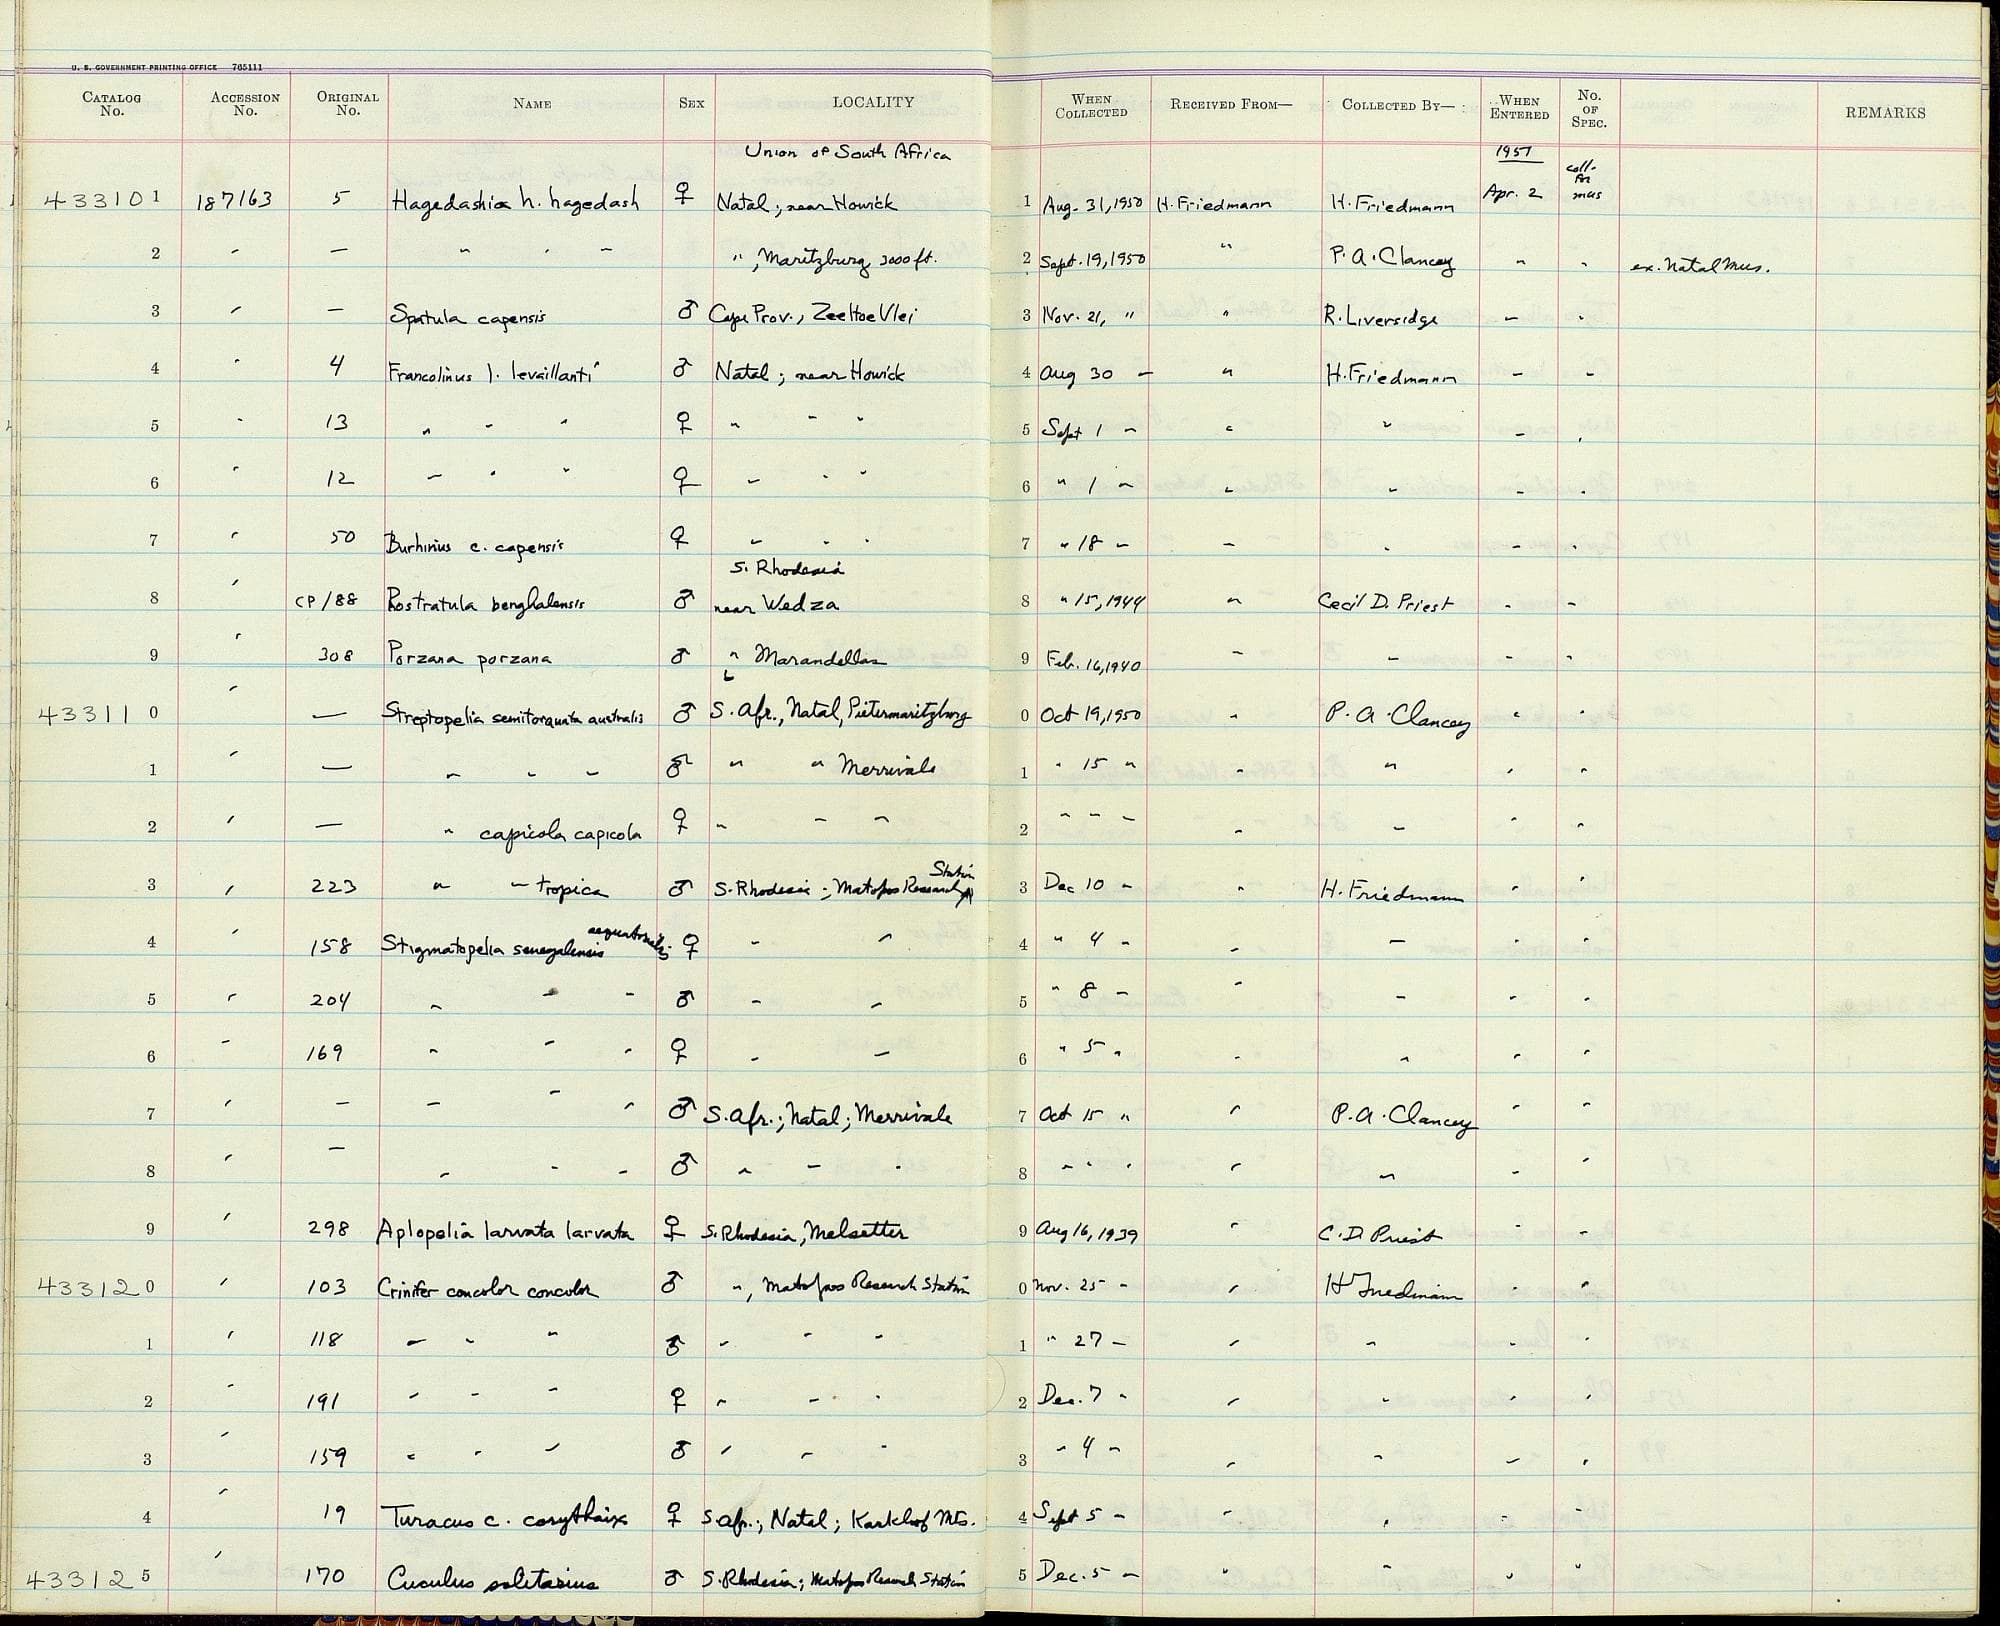 U. S. GOVERNMENT PRINTING OFFICE 765111
CATALOG No. ACCESSION No. ORIGINAL No. NAME SEX LOCALITY WHEN COLLECTED RECEIVED FROM— COLLECTED BY— WHEN ENTERED No. OF SPEC. REMARKS
Union of South Africa 1951
433101 187163 5 Hagedashia h. hagedash ♀ Natal; near Howick 1 Aug. 31, 1950 H. Friedmann H. Friedmann Apr. 2 coll. for mus
2 " — " " " " , Maritzburg 3000 ft. 2 Sept. 19, 1950 " P. A. Clancey " " ex. Natal Mus.
3 " — Spatula capensis ♂ Cape Prov., Zeekoe Vlei 3 Nov. 21, " " R. Liversidge " "
4 " 4 Francolinus l. levaillanti ♂ Natal; near Howick 4 Aug 30 " " H. Friedmann " "
5 " 13 " " " ♀ " " " 5 Sept 1 " " " " "
6 " 12 " " " ♀ " " " 6 " 1 " " " " "
7 " 50 Burhinus c. capensis ♀ " " " 7 " 18 " " " " "
S. Rhodesia
8 " CP/88 Rostratula benghalensis ♂ near Wedza 8 " 15, 1944 " Cecil D. Priest " "
9 " 308 Porzana porzana ♂ " Marandellas 9 Feb. 16, 1940 " " " "
433110 " — Streptopelia semitorquata australis ♂ S. Afr., Natal, Pietermaritzburg 0 Oct 19, 1950 " P. A. Clancey " "
1 " — " " " ♂ " " Merrivale 1 " 15 " " " " "
2 " — " capicola capicola ♀ " " " 2 " " " " " " "
3 " 223 " " tropica ♂ S. Rhodesia; Matopos Research Station 3 Dec 10 " " H. Friedmann " "
4 " 158 Stigmatopelia senegalensis aequatorialis ♀ " " 4 " 4 " " " " "
5 " 204 " " " ♂ " " 5 " 8 " " " " "
6 " 169 " " " ♀ " " 6 " 5 " " " " "
7 " — " " " ♂ S. Afr.; Natal; Merrivale 7 Oct 15 " " P. A. Clancey " "
8 " — " " " ♂ " " " 8 " " " " " " "
9 " 298 Aplopelia larvata larvata ♀ S. Rhodesia, Melsetter 9 Aug 16, 1939 " C. D. Priest " "
433120 " 103 Crinifer concolor concolor ♂ ", Matopos Research Station 0 Nov. 25 " " H Friedmann " "
1 " 118 " " " ♂ " " " 1 " 27 " " " " "
2 " 191 " " " ♀ " " " 2 Dec. 7 " " " " "
3 " 159 " " " ♂ " " " 3 " 4 " " " " "
4 " 19 Turacus c. corythaix ♀ S. Afr.; Natal; Karkloof Mts. 4 Sept 5 " " " " "
433125 " 170 Cuculus solitarius ♂ S. Rhodesia; Matopos Research Station 5 Dec. 5 " " " " "